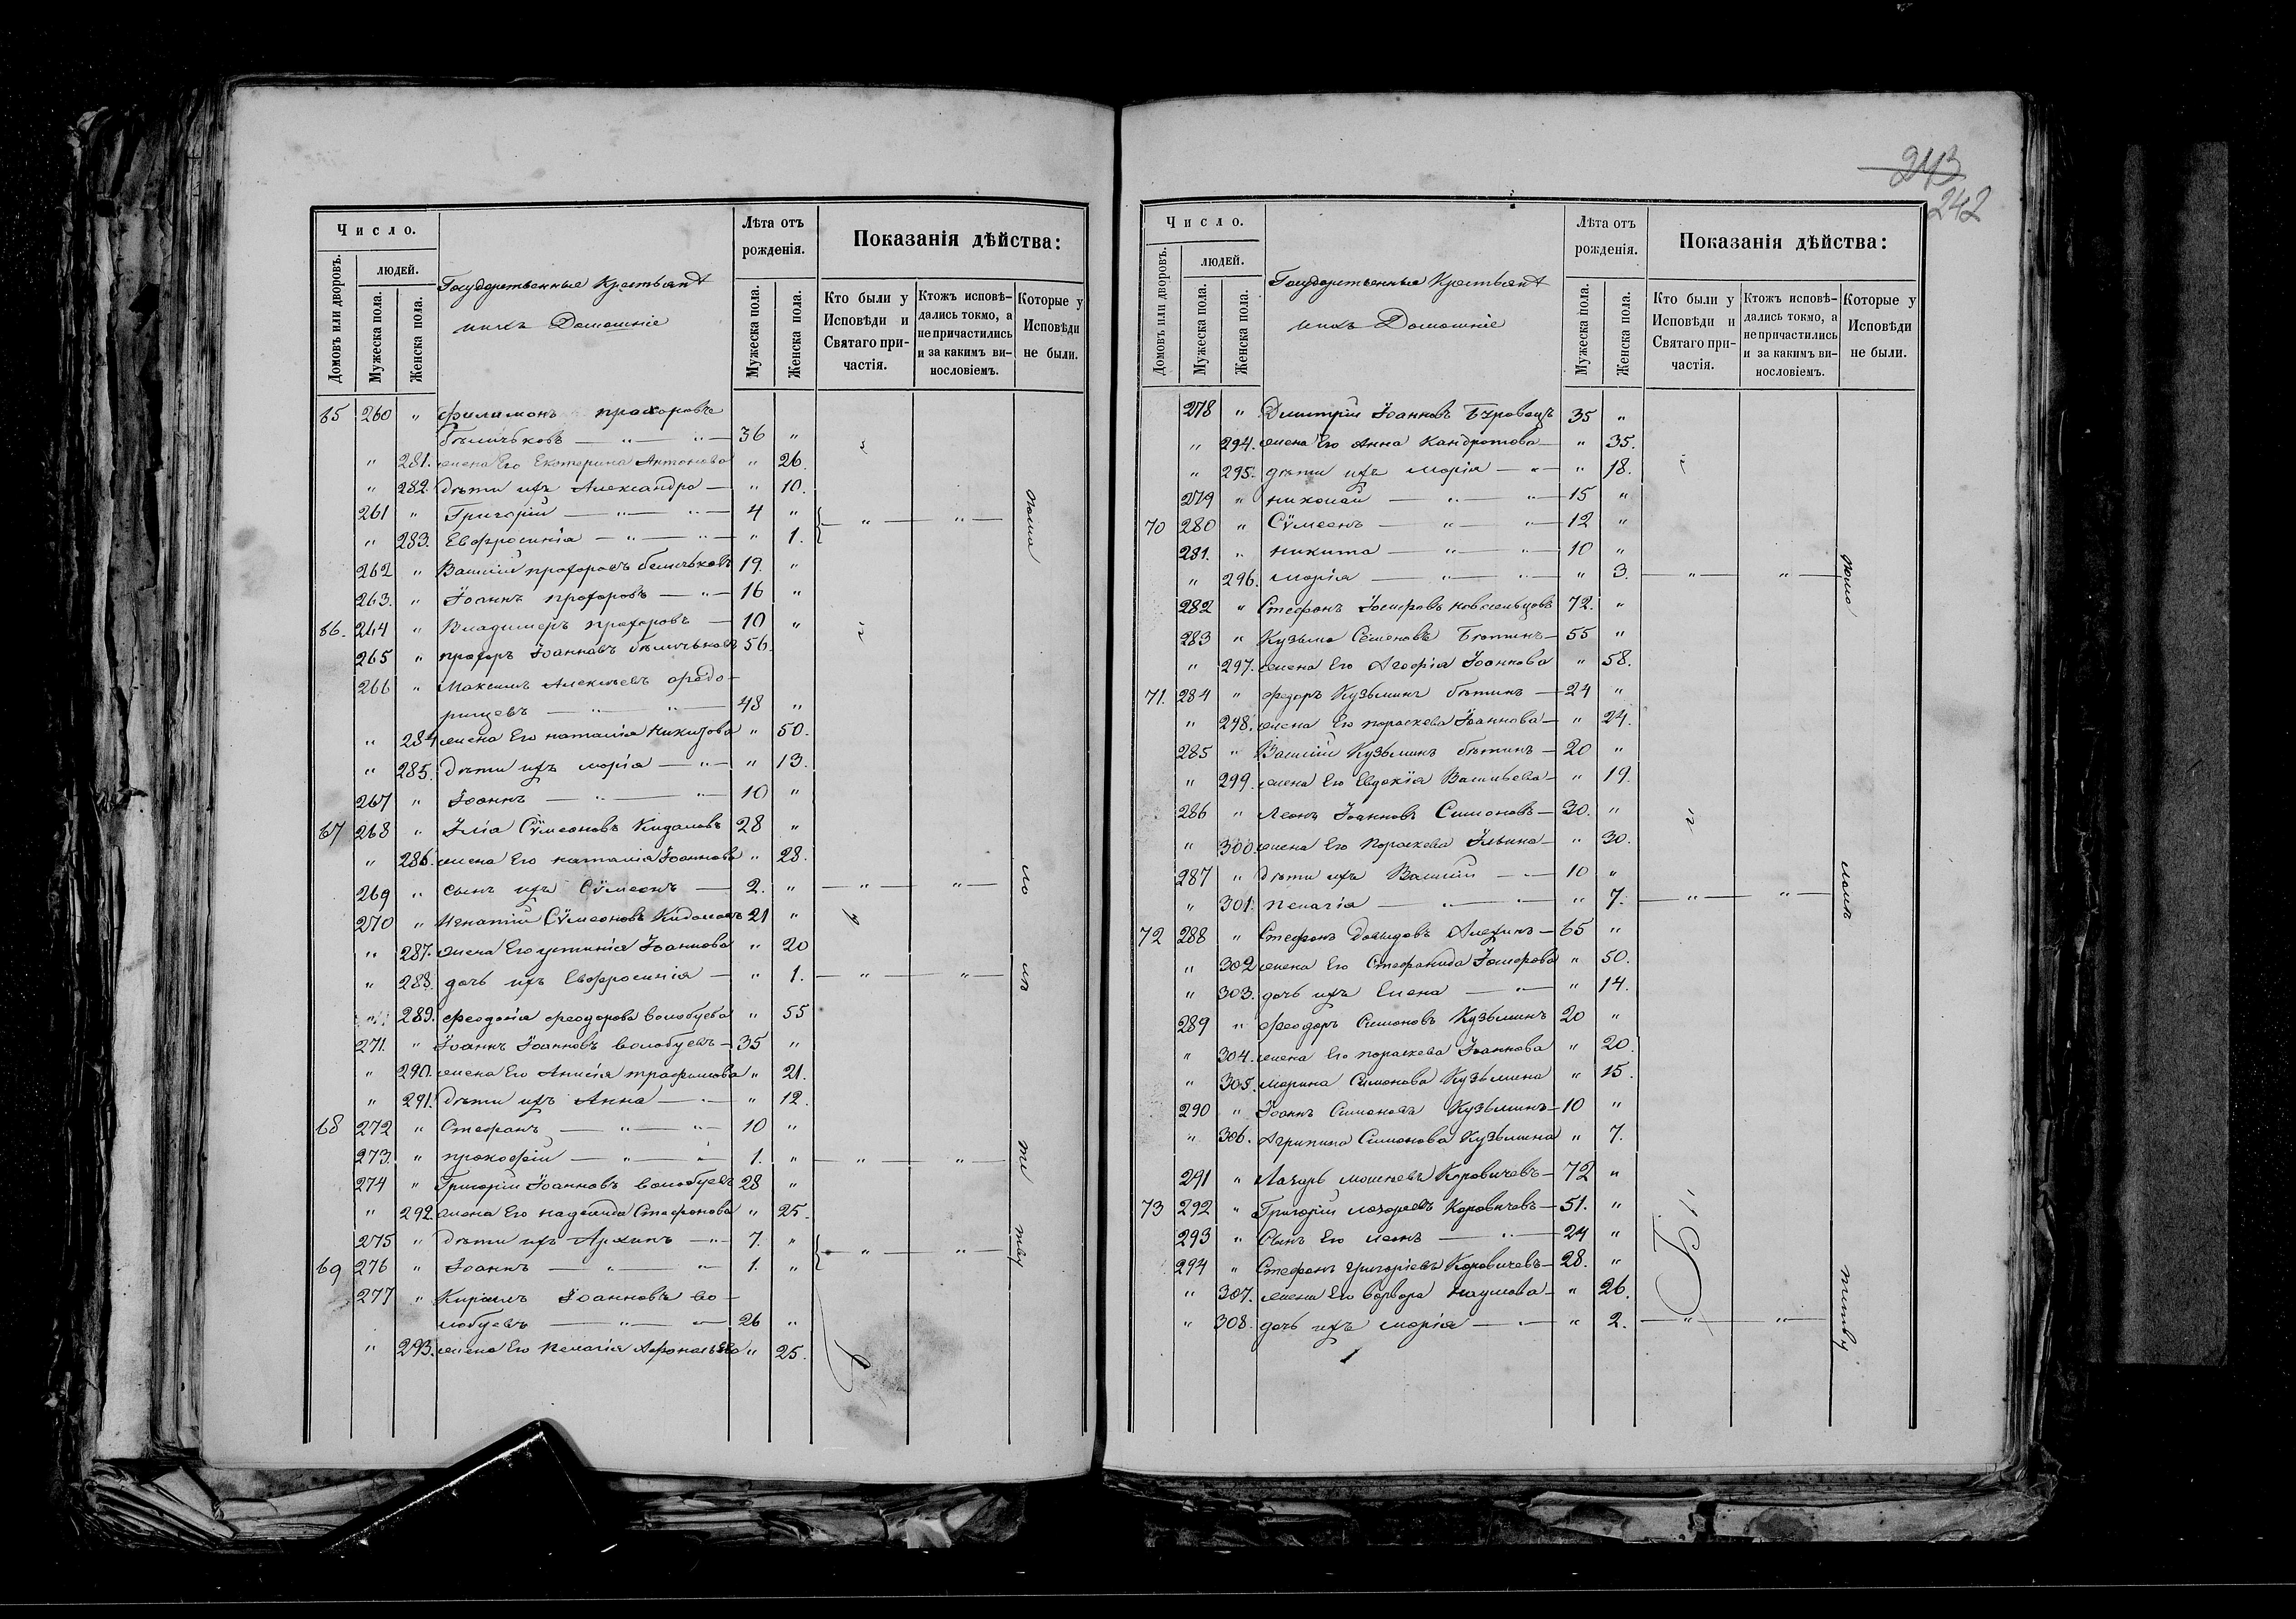 243
242
Число.
Лѣта отъ рожденія.
Показанія дѣйства:
Домовъ или дворовъ.
людей.
Мужеска пола.
Женска пола.
Государственные Крестьяне
и ихъ Домашніе
Мужеска пола.
Женска пола.
Кто были у Исповѣди и Святаго причастія.
Ктожъ исповѣ-
дались токмо, а
не причастились
и за какимъ ви-
нословіемъ.
Которые у
Исповѣди
не были.
65 260 " Филимонъ Прохоровъ
— " — " — 36 "
" 281. жена Его Екатерина Антонова " 26.
" 282. дѣти ихъ Александра — " 10.
261 " Григорій — " — " — 4 "
" 283. Евфросинія — " — " — " 1.
262 " Василій Прохоровъ 19. "
263. " Іоаннъ Прохоровъ — " — 16 "
66. 264 " Владимеръ Прохоровъ — 10 "
265 " Прохоръ Іоанновъ 56.
266 " Максимъ Алексѣевъ Федо-
рищевъ — " — " — 48 "
" 284 жена Его Наталія Никитова " 50.
" 285. дѣти ихъ Марія — " — " 13.
267 " Іоаннъ — " — " — 10 "
67 268 " Илія Сѵмеоновъ Кидаловъ 28 "
" 286. жена Его Наталія Іоаннова " 28.
269 " сынъ ихъ Сѵмеонъ — 2. " — " — " —
270 " Игнатій Сѵмеоновъ Кидаловъ 21 "
" 287. жена Его Устинія Іоаннова " 20
" 288. дочь ихъ Евфросинія — " 1. — " — " —
" 289. Феодосія Феодорова Волобуева " 55
271. " Іоаннъ Іоанновъ Волобуевъ — 35 "
" 290. жена Его Анисія Трофимова " 21.
" 291. дѣти ихъ Анна — " — " 12.
68 272 " Стефанъ — " — " — 10 "
273. " Прокофій — " — " — 1. " — " — " —
274 " Григорій Іоанновъ Волобуевъ 28 "
" 292. жена Его Надежда Стефанова " 25.
275 " дѣти ихъ Архипъ — " — 7. "
69 276 " Іоаннъ — " — " — 1. "
277 " Кирилъ Іоанновъ Во-
лобуевъ — " — " — 26 "
" 293. жена Его Пелагія Афонасьева " 25.
Число.
Лѣта отъ рожденія.
Показанія дѣйства:
Домовъ или дворовъ.
людей.
Мужеска пола.
Женска пола.
Государственные Крестьяне
и ихъ Домашніе
Мужеска пола.
Женска пола.
Кто были у Исповѣди и Святаго причастія.
Ктожъ исповѣ-
дались токмо, а
не причастились
и за какимъ ви-
нословіемъ.
Которые у
Исповѣди
не были.
278 " Дмитрій Іоанновъ 35 "
" 294. жена Его Анна Кандратова — " 35.
" 295. дѣти ихъ Марія — " — " 18.
279 " Николай — " — " — 15 "
70 280 " Сѵмеонъ — " — " — 12 "
281. " Никита — " — " — 10 "
" 296. Марія — " — " — " 3. — " — " —
282 " Стефанъ Іосифовъ Новосельцовъ 72. "
283 " Кузьма Семеновъ Бѣтинъ — 55 "
" 297. жена Его Агафія Іоаннова " 58.
71. 284 " Федоръ Кузьминъ Бѣтинъ — 24 "
" 298. жена Его Пораскева Іоаннова — " 24.
285 " Василій Кузьминъ Бѣтинъ — 20 "
" 299. жена Его Евдокія Васильева — " 19.
286 " Леонъ Іоанновъ Симоновъ — 30. "
" 300. жена Его Пораскева Ильина — " 30.
287 " дѣти ихъ Василій — " — 10 "
" 301. Пелагія — " — " — " 7. — " — " —
72 288 " Стефанъ Давыдовъ Алехинъ — 65 "
" 302 жена Его Стефанида Іосифова " 50.
" 303. дочь ихъ Елена — " — " 14.
289 " Феодоръ Симоновъ Кузьминъ 20 "
" 304. жена Его Пораскева Іоаннова " 20.
" 305. Марина Симонова Кузьмина " 15.
290 " Іоаннъ Симоновъ Кузьминъ — 10 "
" 306. Агрипина Симонова Кузьмина " 7.
291 " Лазарь Моисѣевъ Коровичевъ — 72 "
73 292 " Григорій Лазоревъ Коровичевъ — 51. "
293 " Сынъ Его Леонъ — " — 24 "
294 " Стефанъ Григоріевъ Коровичевъ — 28. "
" 307. жена Его Варвара Наумова — " 26.
" 308. дочь ихъ Марія — " — " 2. — " — " —